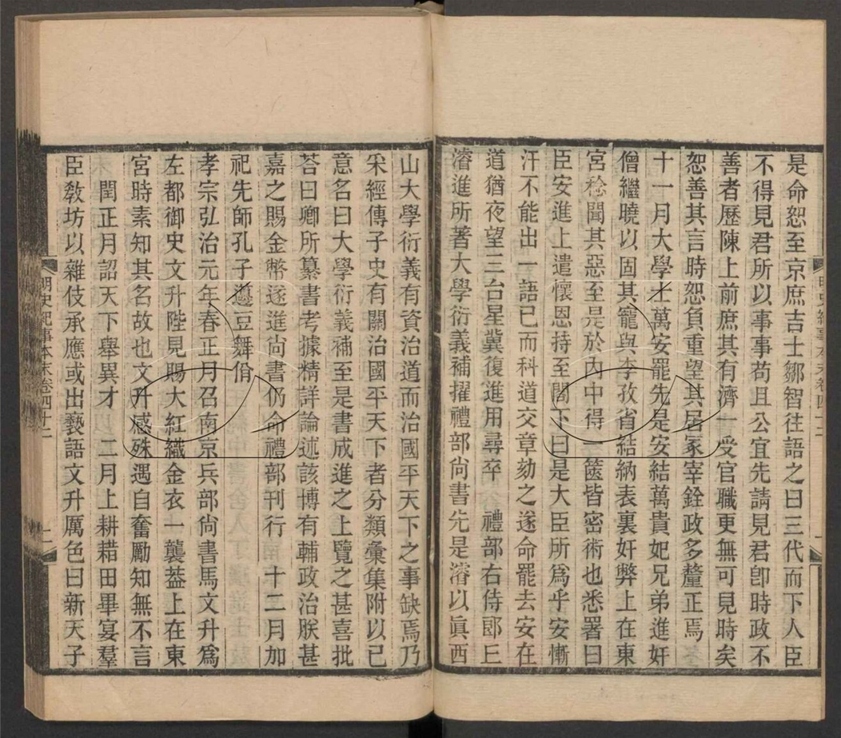 是命恕至京庶吉士鄒智往語之曰三代而下人臣
不得見君所以事事苟且公宜先請見君卽時政不
善者歷陳上前庶其有濟一受官職更無可見時矣
恕善其言時恕負重望其居冢宰銓政多釐正焉
十一月大學士萬安罷先是安結萬貴妃兄弟進奸
僧繼曉以固其寵與李孜省結納表裏奸弊上在東
宮稔聞其惡至是於內中得一篋皆密術也悉署曰
臣安進上遣懷恩持至閣下曰是大臣所爲乎安慚
汗不能出一語已而科道交章劾之遂命罷去安在
道猶夜望三台星冀復進用尋卒　禮部右侍郎丘
濬進所著大學衍義補擢禮部尚書先是濬以眞西
明史紀事本末卷四十二
一
山大學衍義有資治道而治國平天下之事缺焉乃
采經傳子史有關治國平天下者分類彙集附以已
意名曰大學衍義補至是書成進之上覽之甚喜批
荅曰卿所纂書考據精詳論述該博有輔政治朕甚
嘉之賜金幣遂進尚書仍命禮部刊行　十二月加
祀先師孔子籩豆舞佾
孝宗弘治元年春正月召南京兵部尚書馬文升爲
左都御史文升陛見賜大紅織金衣一襲葢上在東
宮時素知其名故也文升感殊遇自奮勵知無不言
閏正月詔天下舉異才　二月上耕耤田畢宴羣
臣敎坊以雜伎承應或出褻語文升厲色曰新天子
明史紀事本末卷四十二